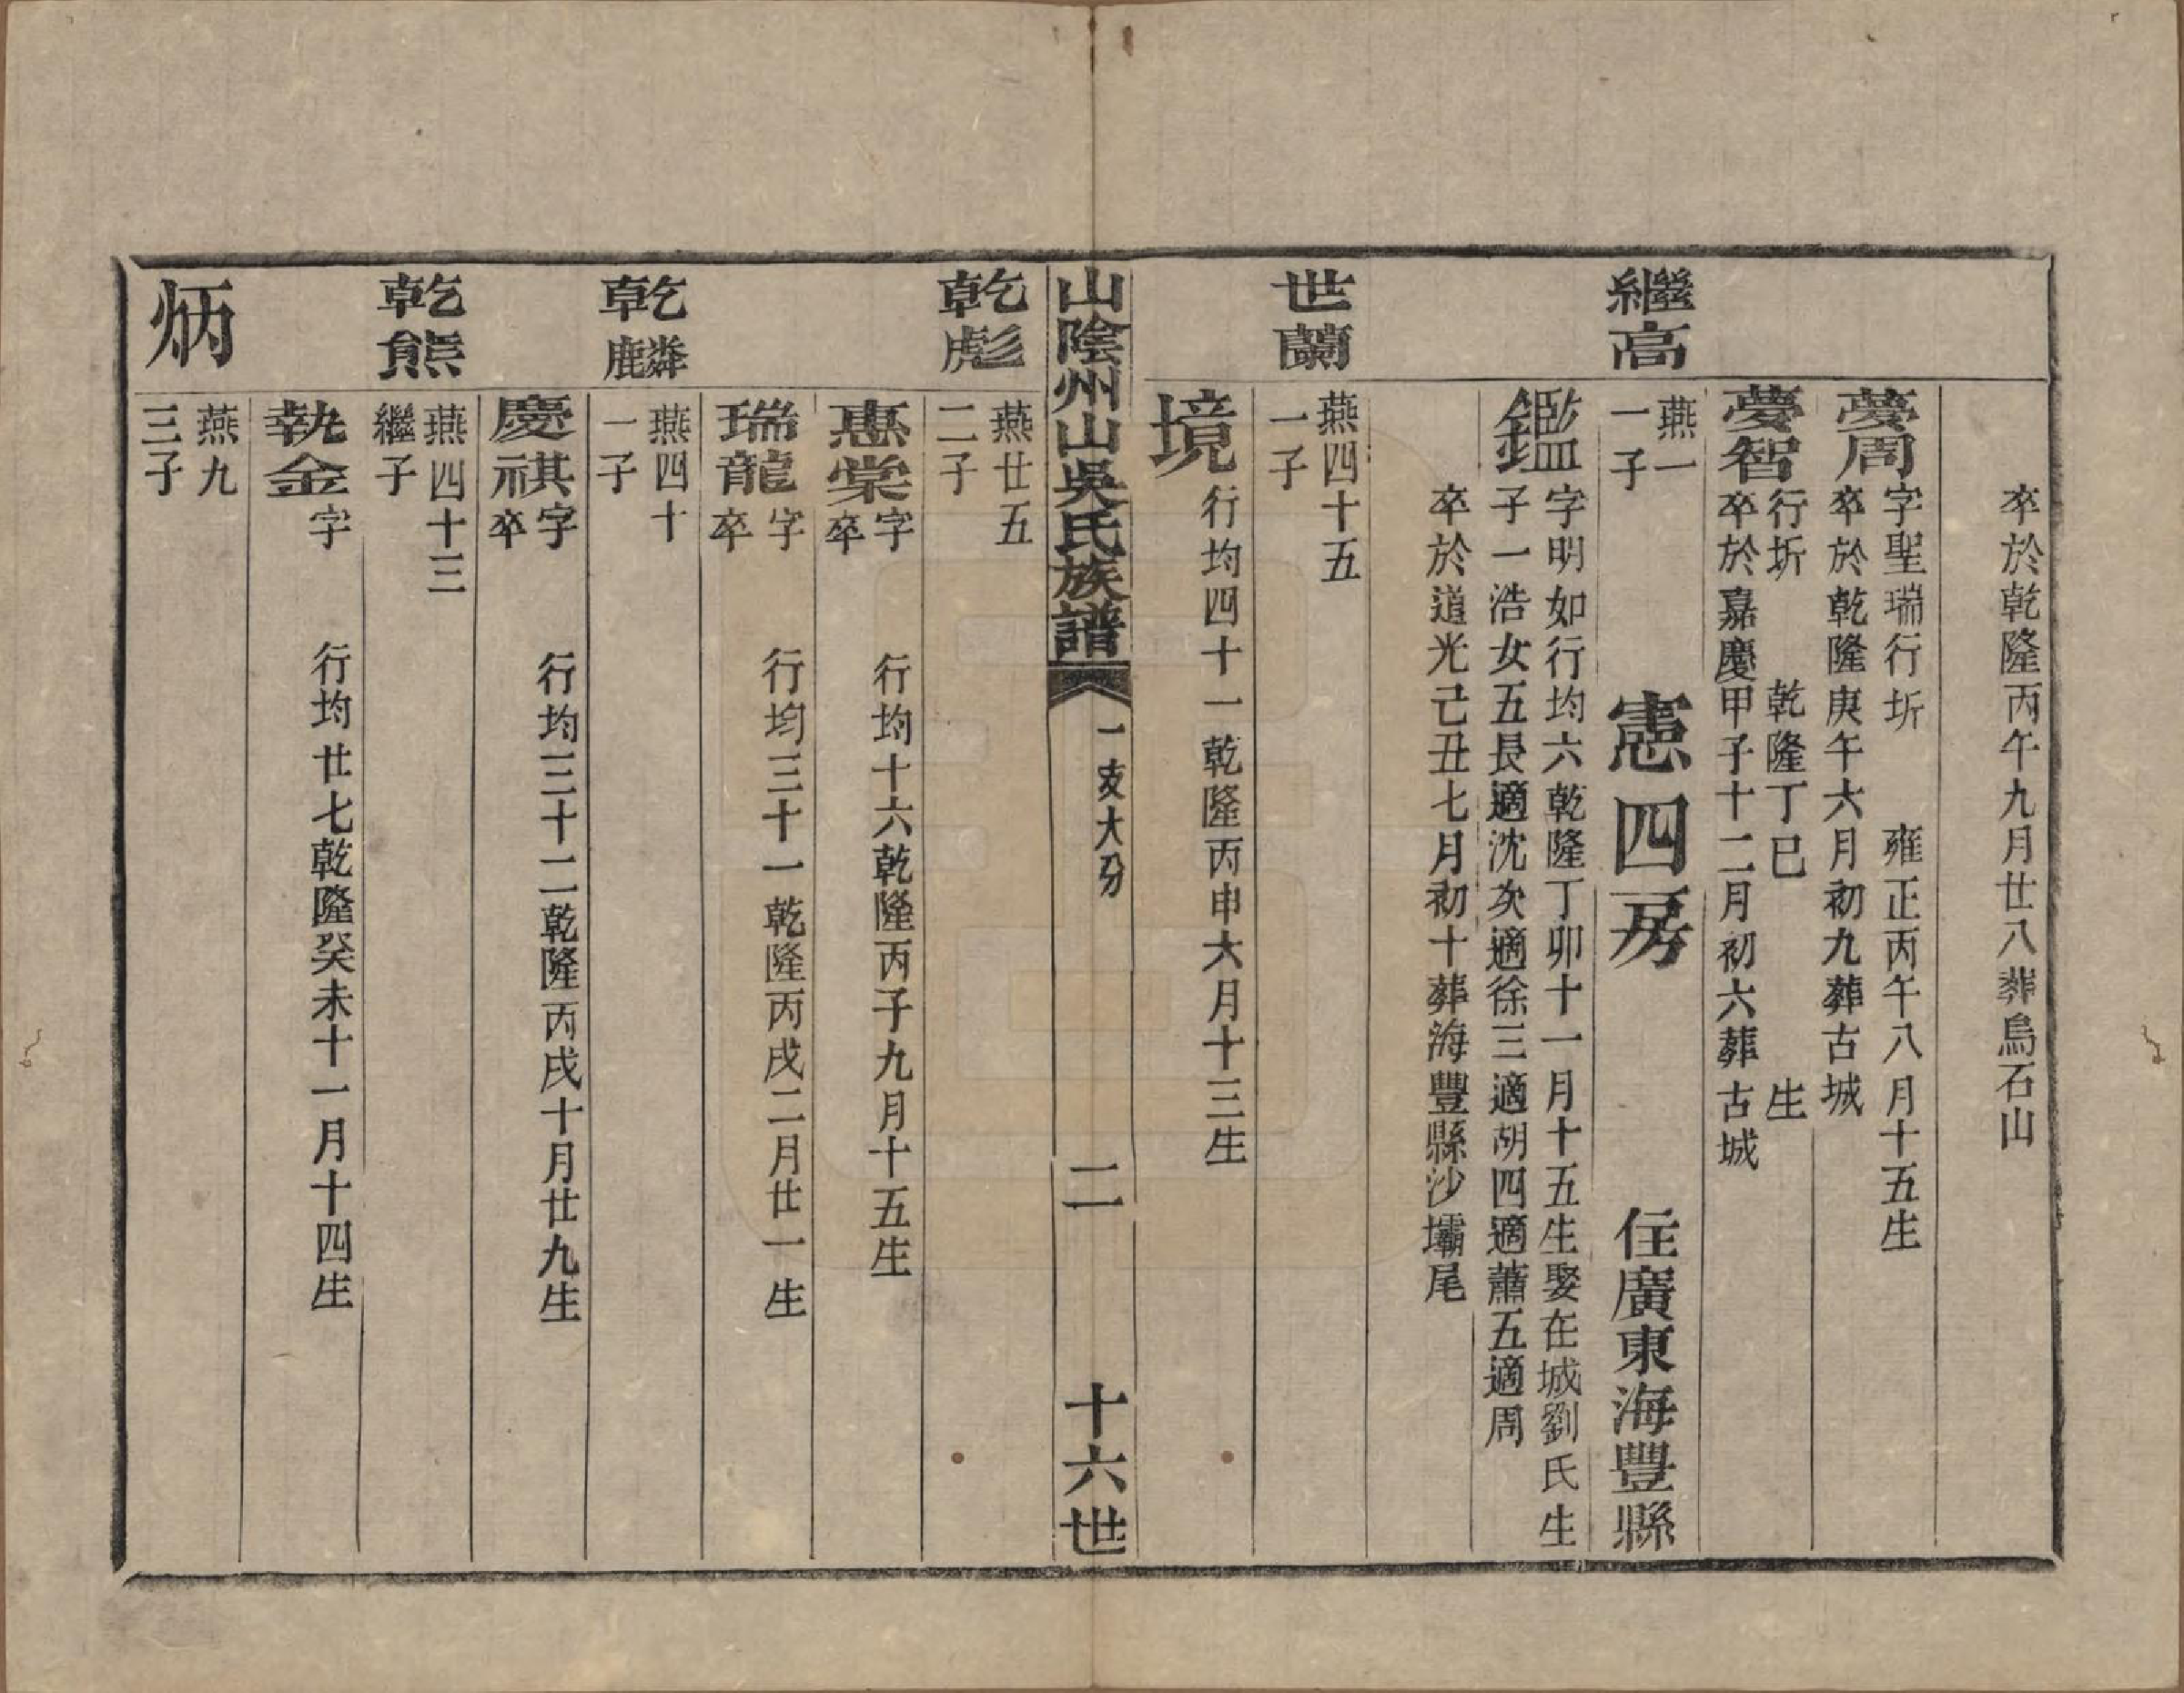 卒於乾隆丙午九月廿八葬烏石山
夢周
字聖瑞行圻　雍正丙午八月十五生
卒於乾隆庚午六月初九葬古城
夢智
行圻　乾隆丁巳　生
卒於嘉慶甲子十二月初六葬古城
憲四房　住廣東海豐縣
繼高
燕一
一子
鑑
字明如行均六乾隆丁卯十一月十五生娶在城劉氏生
子一浩女五長適沈次適徐三適胡四適蕭五適周
卒於道光己丑七月初十葬海豐縣沙壩尾
世蘭
燕四十五
一子
境
行均四十一乾隆丙申六月十三生
山陰州山吳氏族譜　一支大分　二　十六世
乾彪
燕廿五
二子
惠棠
字　行均十六乾隆丙子九月十五生
卒
瑞龍
字　行均三十一乾隆丙戌二月廿一生
卒
乾麟
燕四十
一子
慶祺
字　行均三十二乾隆丙戌十月廿九生
卒
乾熊
燕四十三
繼子
執金
字　行均廿七乾隆癸未十一月十四生
炳
燕九
三子